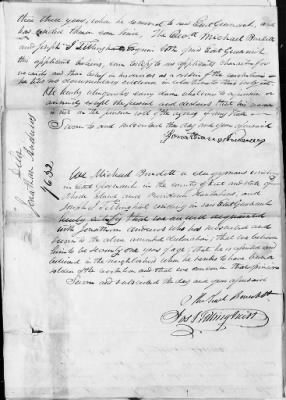 then three years, when he removed to East Greenwich, and
has resided there ever since. The Revd Michael Burdett
and Joseph J Tillinghast Esquire both of East Greenwich
the applicant believes, can testify to my applicants character for
veracity and their belief in his services as a soldier of the revolution
he has no documentary evidence in relation to his service
He hereby relinquishes every claim whatever to a pension or
annuity except the present and declares that his name
is not on the pension roll of the agency of any State
Sworn to and subscribed the day and year aforesaid
Jonathan Andrews
We Michael Burdett a clergyman residing
in East Greenwich in the county of Kent and State of
Rhode Island and Providence Plantations and
Joseph J Tillinghast residing in said East Greenwich
hereby certify that we are well acquainted
with Jonathan Andrews who has subscribed and
sworn to the above annexed declaration, that we believe
him to be seventy one years of age; that he is reputed and
believed in the neighborhood where he resides to have been a
soldier of the revolution and that we concur in that opinion
Sworn and subscribed the day and year aforesaid
Michael Burdett
Jos J Tillinghast
Jonathan Andrews
1832